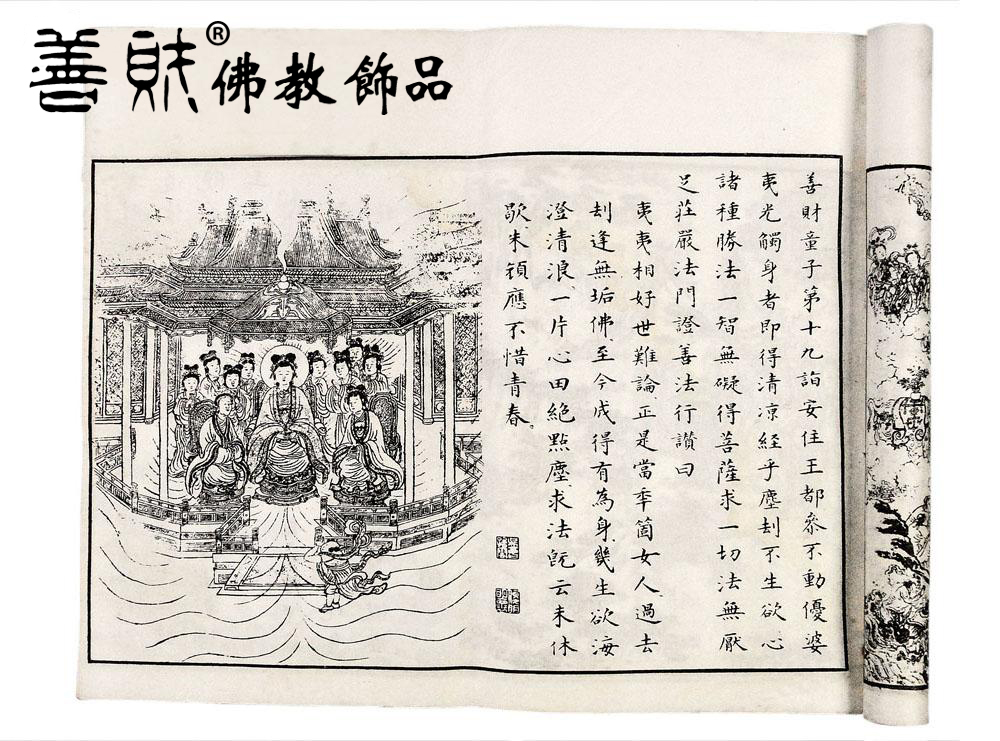 善財®佛教飾品
善財童子第十九詣安住王都參不動優婆
夷光觸身者即得清凉經乎塵刦不生欲心
諸種勝法一智無礙得菩薩求一切法無厭
足莊嚴法門證善法行讚曰
夷夷相好世難論正是當秊箇女人過去
刦逢無垢佛至今成得有為身幾生欲海
澄清浪一片心田絕點塵求法旣云未休
歇朱顏應不惜青春